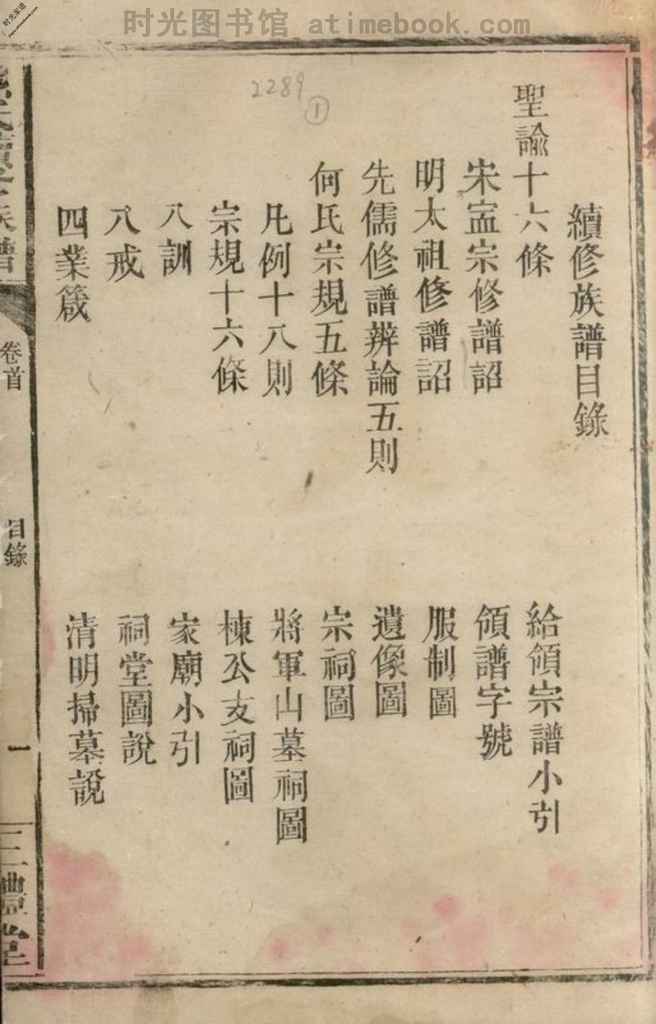 时光图书馆_atimebook.com
时光家谱
2289
①
續修族譜目錄
聖諭十六條
給領宗譜小引
宋寍宗修譜詔
領譜字號
明太祖修譜詔
服制圖
先儒修譜辨論五則
遺像圖
何氏宗規五條
宗祠圖
凡例十八則
將軍山墓祠圖
宗規十六條
棟公支祠圖
八訓
家廟小引
八戒
祠堂圖說
四業箴
清明掃墓說
卷首
目錄
一
三禮堂